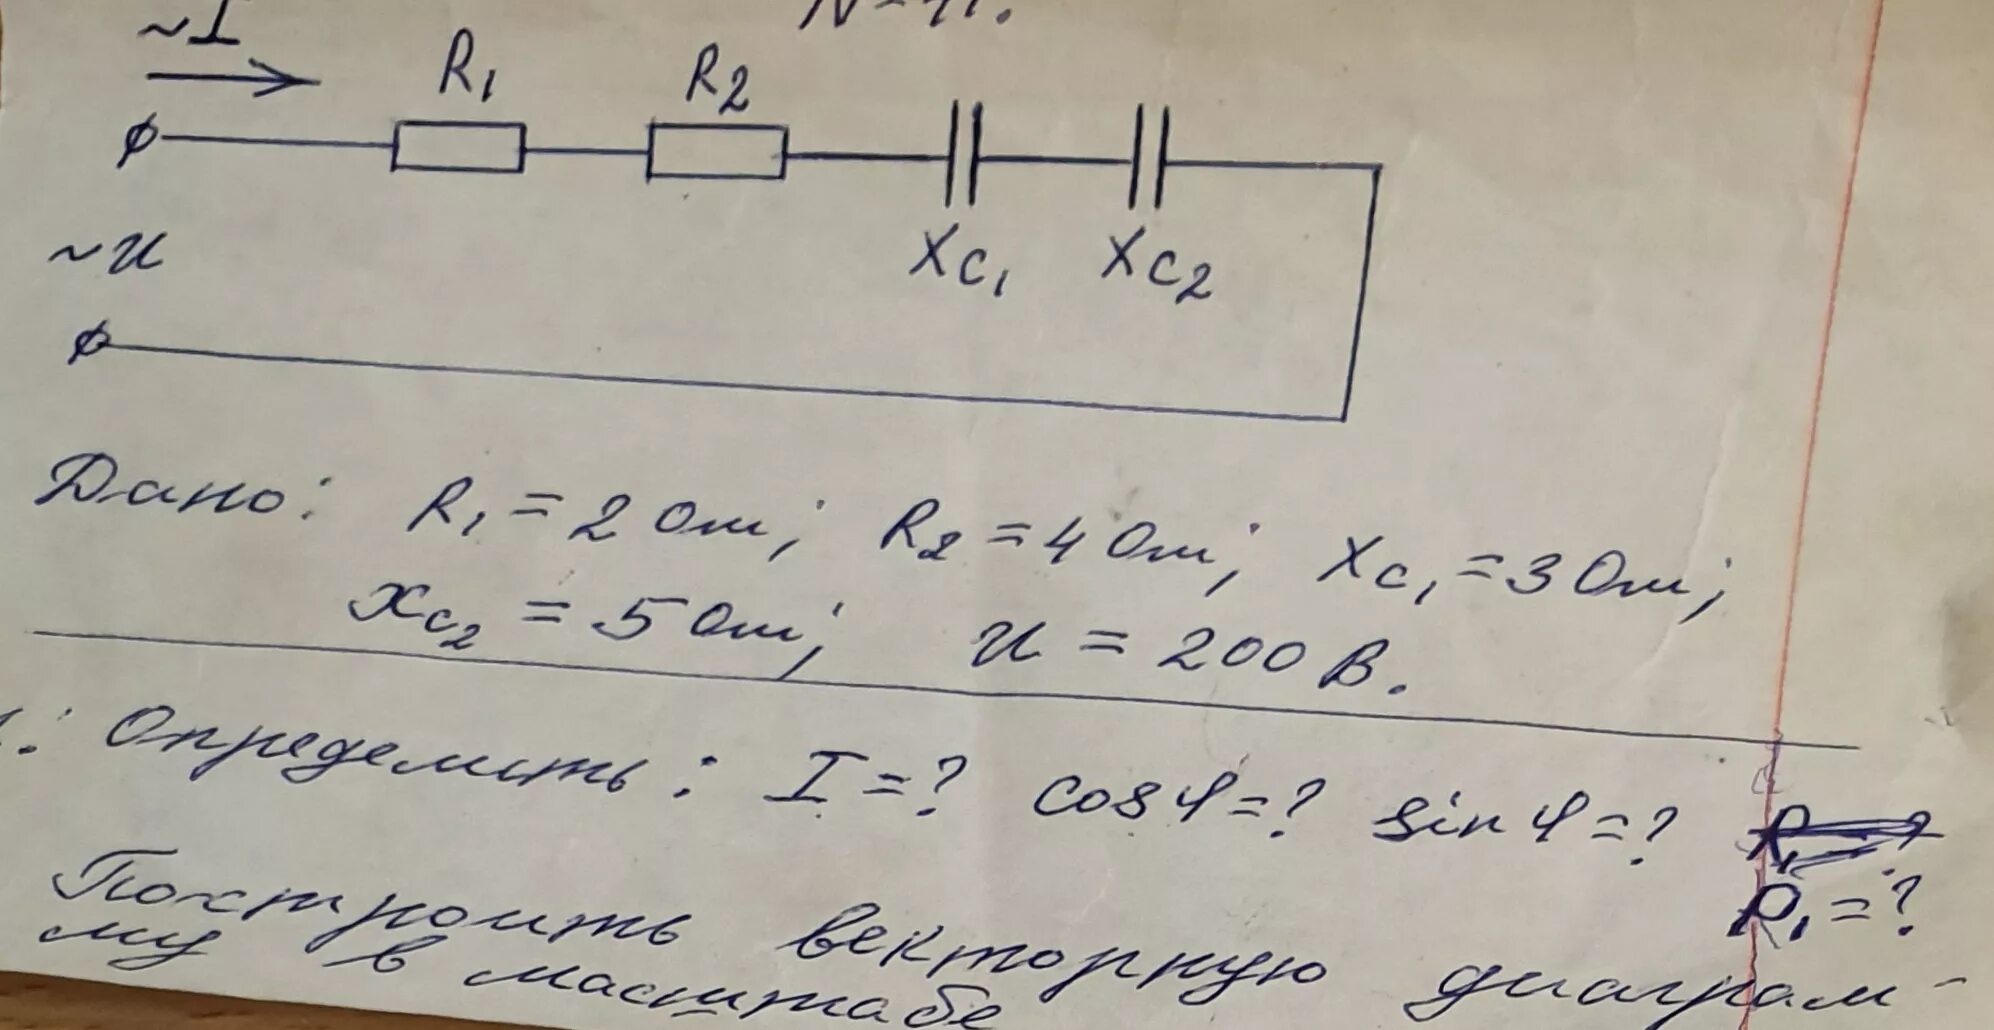 ~I
R1
R2
~U
XC1
XC2
Дано: R1 = 2 Ом; R2 = 4 Ом; XC1 = 3 Ом;
XC2 = 5 Ом; U = 200 В.
Определить: I = ? cos φ = ? sin φ = ?
P1 = ?
Построить векторную диаграм-
му в масштабе